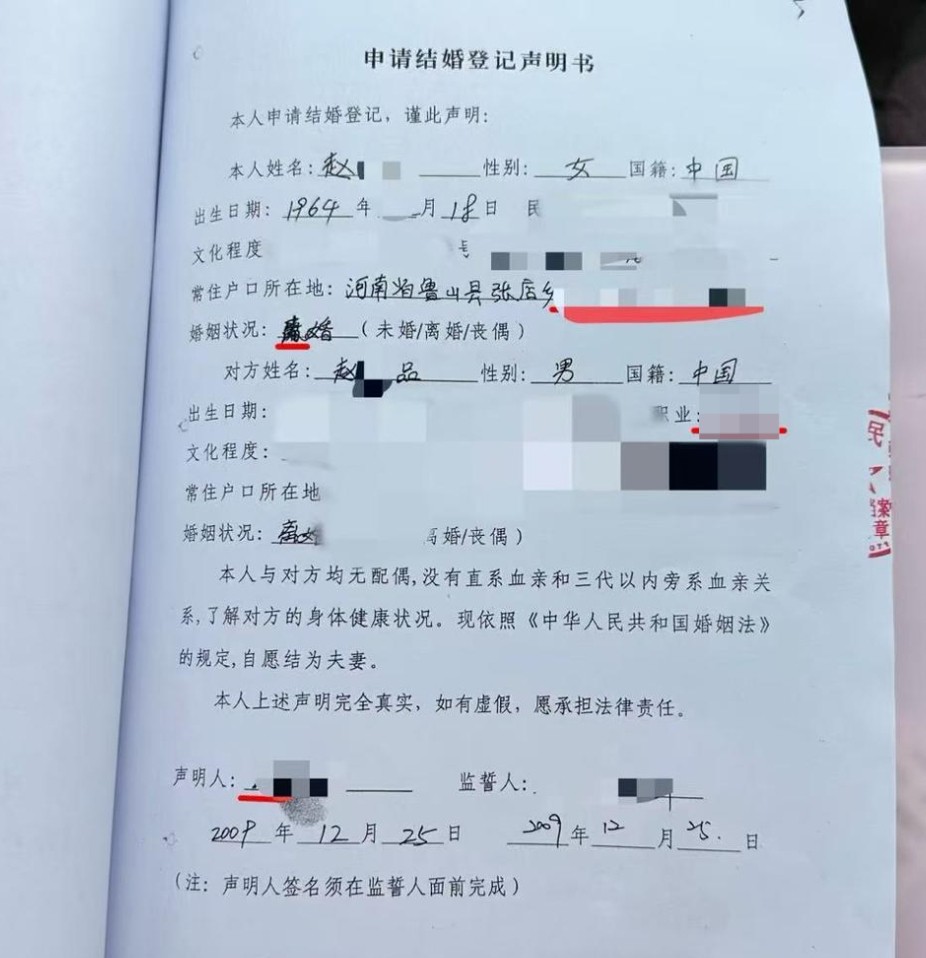 申请结婚登记声明书
本人申请结婚登记，谨此声明：
本人姓名：赵 性别：女 国籍：中国
出生日期：1964年 月18日 民
文化程度 号
常住户口所在地：河南省鲁山县张店乡
婚姻状况：离婚（未婚/离婚/丧偶）
对方姓名：赵 品 性别：男 国籍：中国
出生日期： 职业：
文化程度：
常住户口所在地
婚姻状况：离婚 离婚/丧偶）
本人与对方均无配偶，没有直系血亲和三代以内旁系血亲关
系，了解对方的身体健康状况。现依照《中华人民共和国婚姻法》
的规定，自愿结为夫妻。
本人上述声明完全真实，如有虚假，愿承担法律责任。
声明人： 监誓人：
2009年12月25日 2009年12月25.日
（注：声明人签名须在监誓人面前完成）
民
案
章